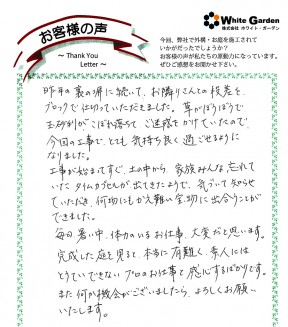 お客様の声
～ Thank You
Letter ～
White Garden
株式会社 ホワイト・ガーデン
今回、弊社で外構・お庭を施工されて
いかがだったでしょうか？
お客様の声が私たちの原動力になっています。
ぜひご感想をお聞かせ下さい。
昨年の裏の塀に続いて、お隣りさんとの段差を
ブロックで仕切っていただきました。草がぼうぼうで
玉砂利がこぼれ落ちて ご迷惑をかけていたので、
今回の工事で、とても気持ち良く過ごせるように
なりました。
工事が始まってすぐ、土の中から 家族みんな忘れて
いた タイムカプセルが出てきたようで、気づいて知らせ
ていただき、何物にもかえ難い宝物に出会うことが
できました。
毎日、暑い中、体力のいるお仕事、大変だと思います。
完成した庭を見ると、本当に有難く、素人には
とうていできない プロのお仕事と感心するばかりです。
また何か機会がございましたら、よろしくお願い
いたします。